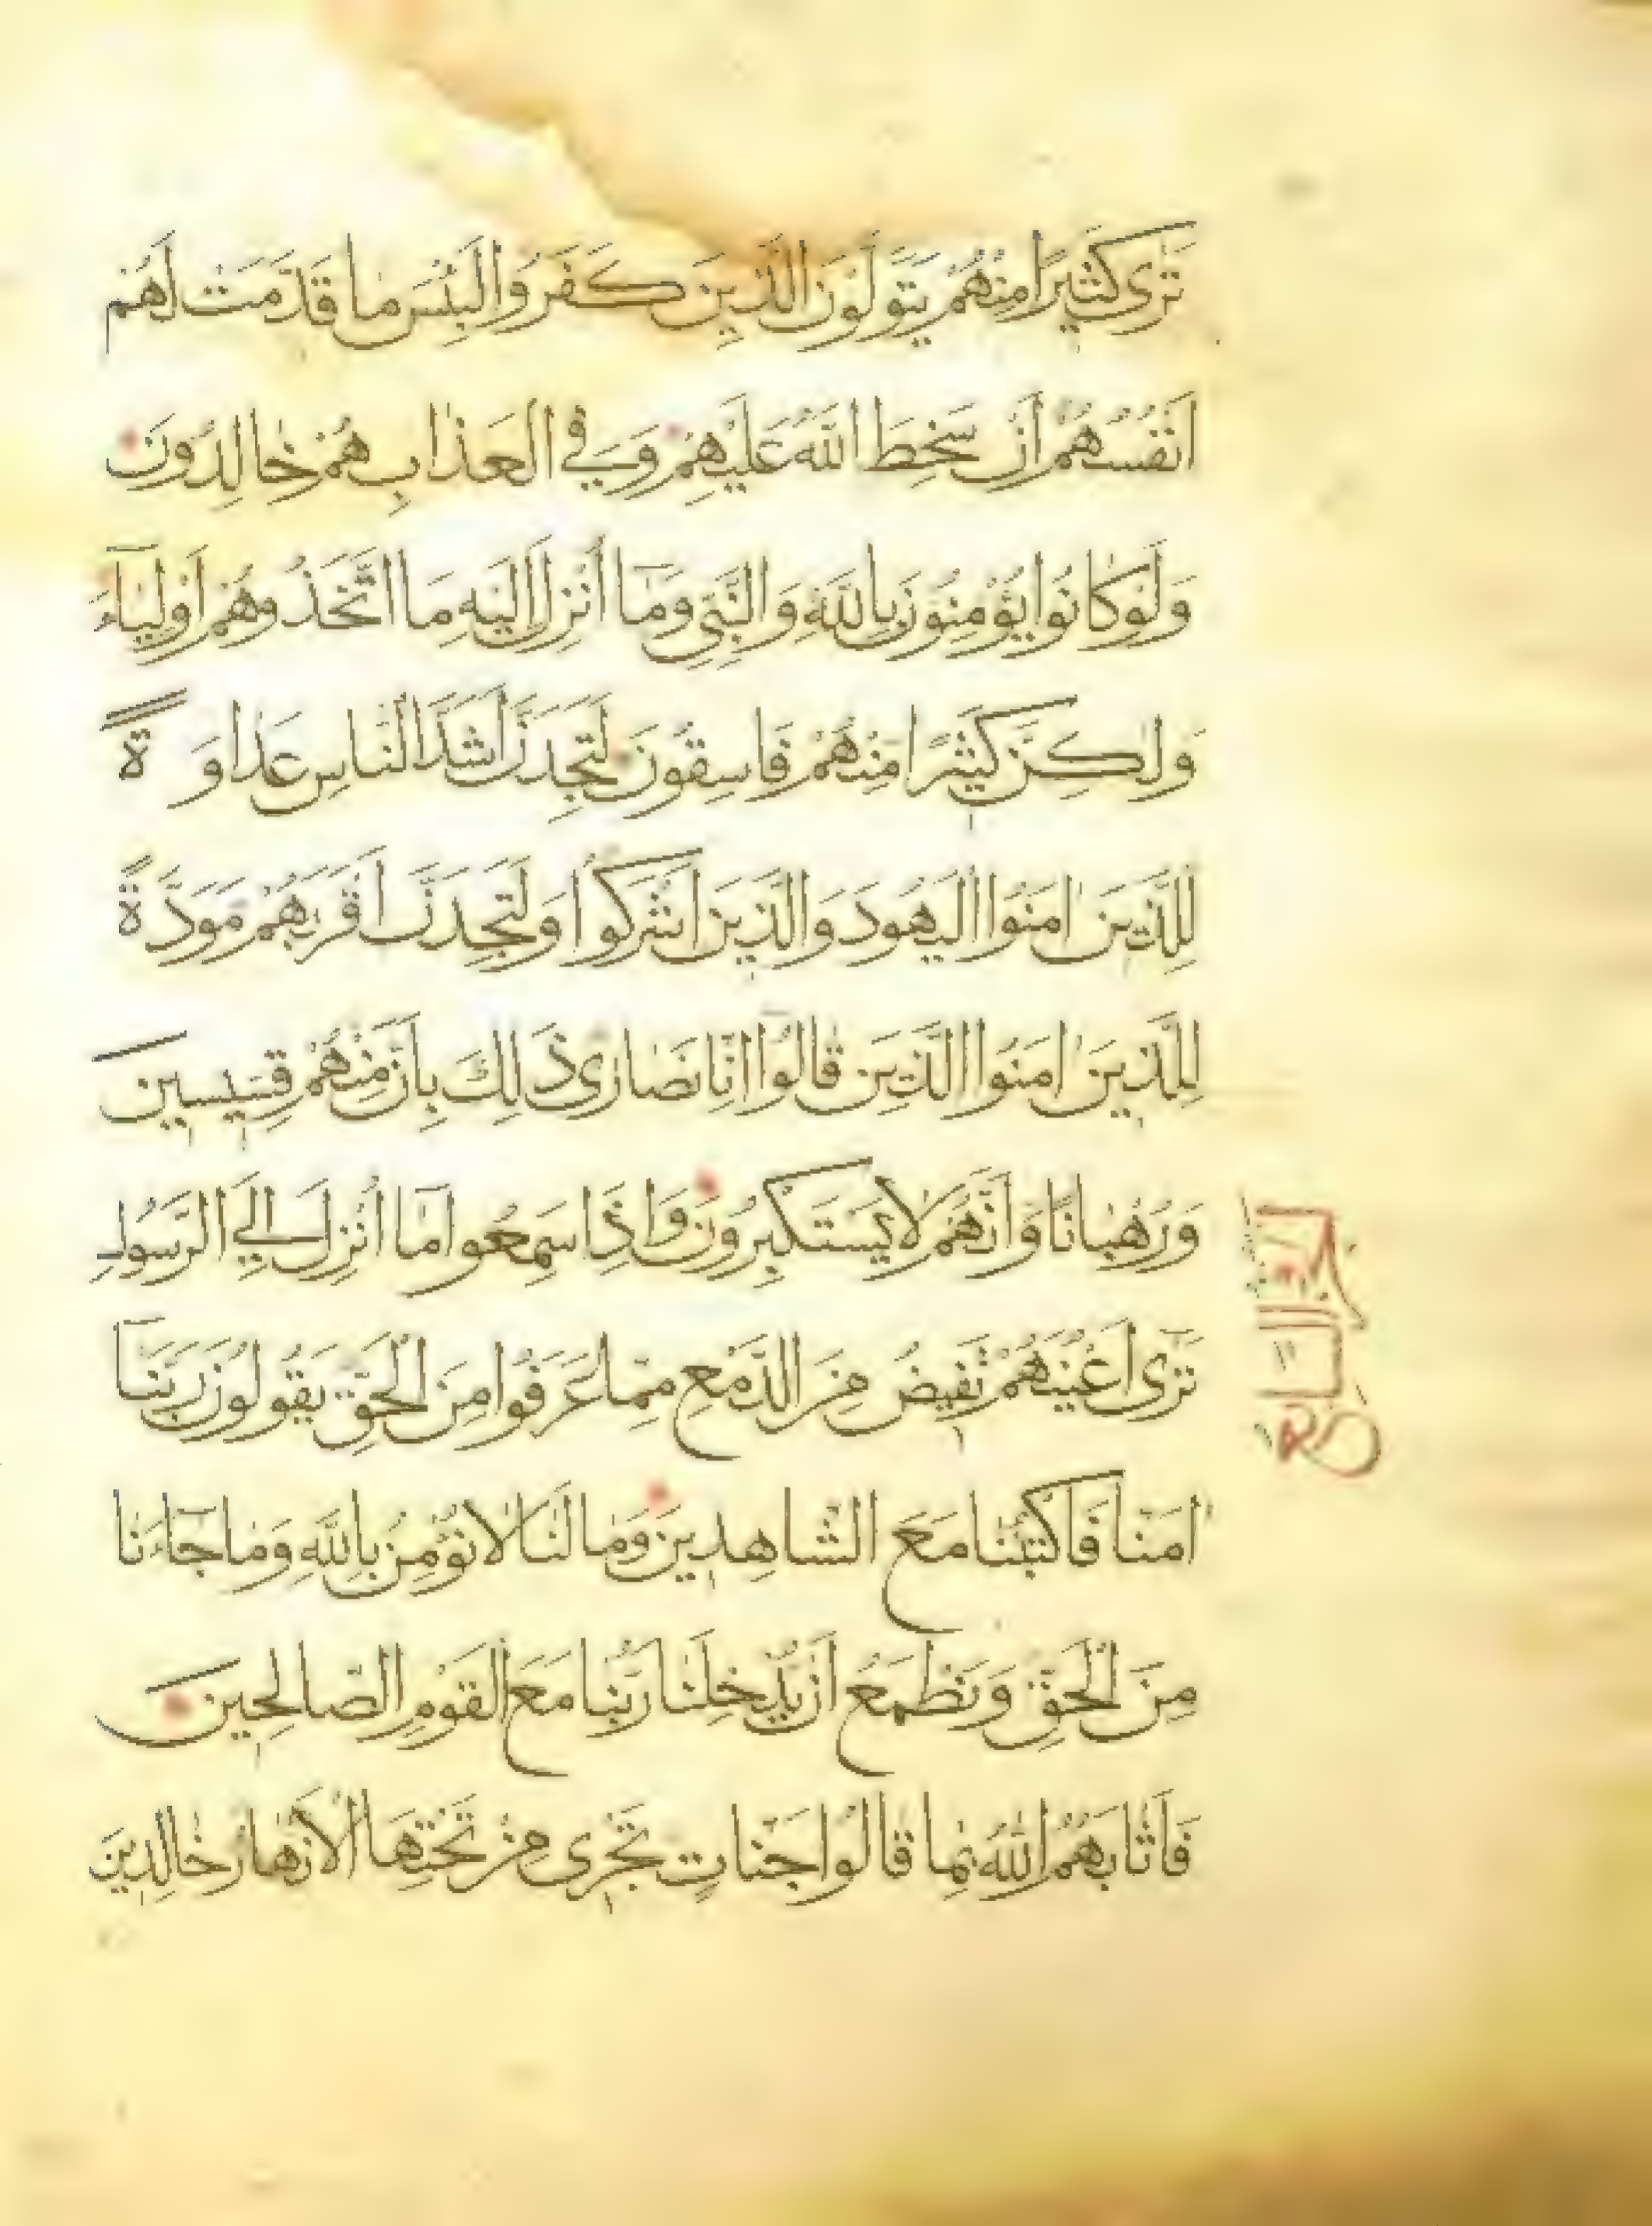 تَرٰى كَثِيرًا مِنْهُمْ يَتَوَلَّوْنَ الَّذِينَ كَفَرُوا لَبِئْسَ مَا قَدَّمَتْ لَهُمْ
اَنْفُسُهُمْ اَنْ سَخِطَ اللّٰهُ عَلَيْهِمْ وَفِي الْعَذَابِ هُمْ خَالِدُونَ
وَلَوْ كَانُوا يُؤْمِنُونَ بِاللّٰهِ وَالنَّبِيِّ وَمَٓا اُنْزِلَ اِلَيْهِ مَا اتَّخَذُوهُمْ اَوْلِيَٓاءَ
وَلٰكِنَّ كَثِيرًا مِنْهُمْ فَاسِقُونَ لَتَجِدَنَّ اَشَدَّ النَّاسِ عَدَاوَةً
لِلَّذِينَ اٰمَنُوا الْيَهُودَ وَالَّذِينَ اَشْرَكُوا وَلَتَجِدَنَّ اَقْرَبَهُمْ مَوَدَّةً
لِلَّذِينَ اٰمَنُوا الَّذِينَ قَالُٓوا اِنَّا نَصَارٰى ذٰلِكَ بِاَنَّ مِنْهُمْ قِسِّيسِينَ
وَرُهْبَانًا وَاَنَّهُمْ لَا يَسْتَكْبِرُونَ وَاِذَا سَمِعُوا مَٓا اُنْزِلَ اِلَي الرَّسُولِ
تَرٰٓى اَعْيُنَهُمْ تَفِيضُ مِنَ الدَّمْعِ مِمَّا عَرَفُوا مِنَ الْحَقِّ يَقُولُونَ رَبَّنَٓا
اٰمَنَّا فَاكْتُبْنَا مَعَ الشَّاهِدِينَ وَمَا لَنَا لَا نُؤْمِنُ بِاللّٰهِ وَمَا جَٓاءَنَا
مِنَ الْحَقِّ وَنَطْمَعُ اَنْ يُدْخِلَنَا رَبُّنَا مَعَ الْقَوْمِ الصَّالِحِينَ
فَاَثَابَهُمُ اللّٰهُ بِمَا قَالُوا جَنَّاتٍ تَجْرِى مِنْ تَحْتِهَا الْاَنْهَارُ خَالِدِينَ